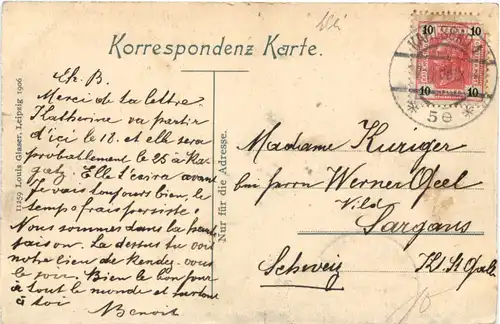 Korrespondenz Karte.
10 10
10 10
KARLSBAD
5e
Ch. B.
Merci de ta lettre.
Katherine va partir
d'ici le 18. et elle sera
probablement le 25 à
Elle t'écrira avant
Je vais toujours bien, le
temps frais persiste!
Nous sommes dans la haute
saison. La dessus tu vois
notre lieu de rendez-vous
le soir. Bien le bonjour
à tout le monde et surtout
à toi
Benoit
11459 Louis Glaser, Leipzig 1906
Nur für die Adresse.
Madame Kuriger
bei Herrn Werner
Vild
Sargans
Schweiz Kt. St. Gall.